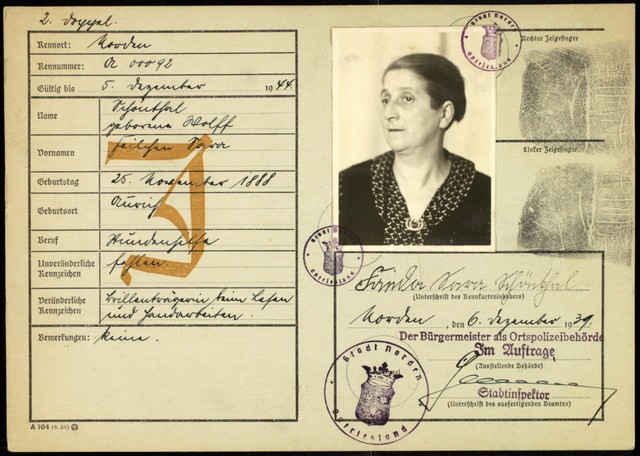 2. Doppel.
Kennort: Norden
Kennnummer: A 00092
Gültig bis 5. Dezember 1944.
Name Schönthal
geborene Wolff
Vornamen Sara
Geburtstag 25. November 1888
Geburtsort Aurich
Beruf
Unveränderliche Kennzeichen fehlen.
Veränderliche Kennzeichen Brillenträgerin beim Lesen
und Handarbeiten.
Bemerkungen: keine.
A 104 (8. 38)
Stadt Norden
Ostfriesland
Rechter Zeigefinger
Linker Zeigefinger
Stadt Norden
Ostfriesland
Sara Schönthal
(Unterschrift des Kennkarteninhabers)
Norden, den 6. Dezember 1939.
Der Bürgermeister als Ortspolizeibehörde
Im Auftrage
(Ausstellende Behörde)
Stadtinspektor
(Unterschrift des ausfertigenden Beamten)
Stadt Norden
Ostfriesland
J